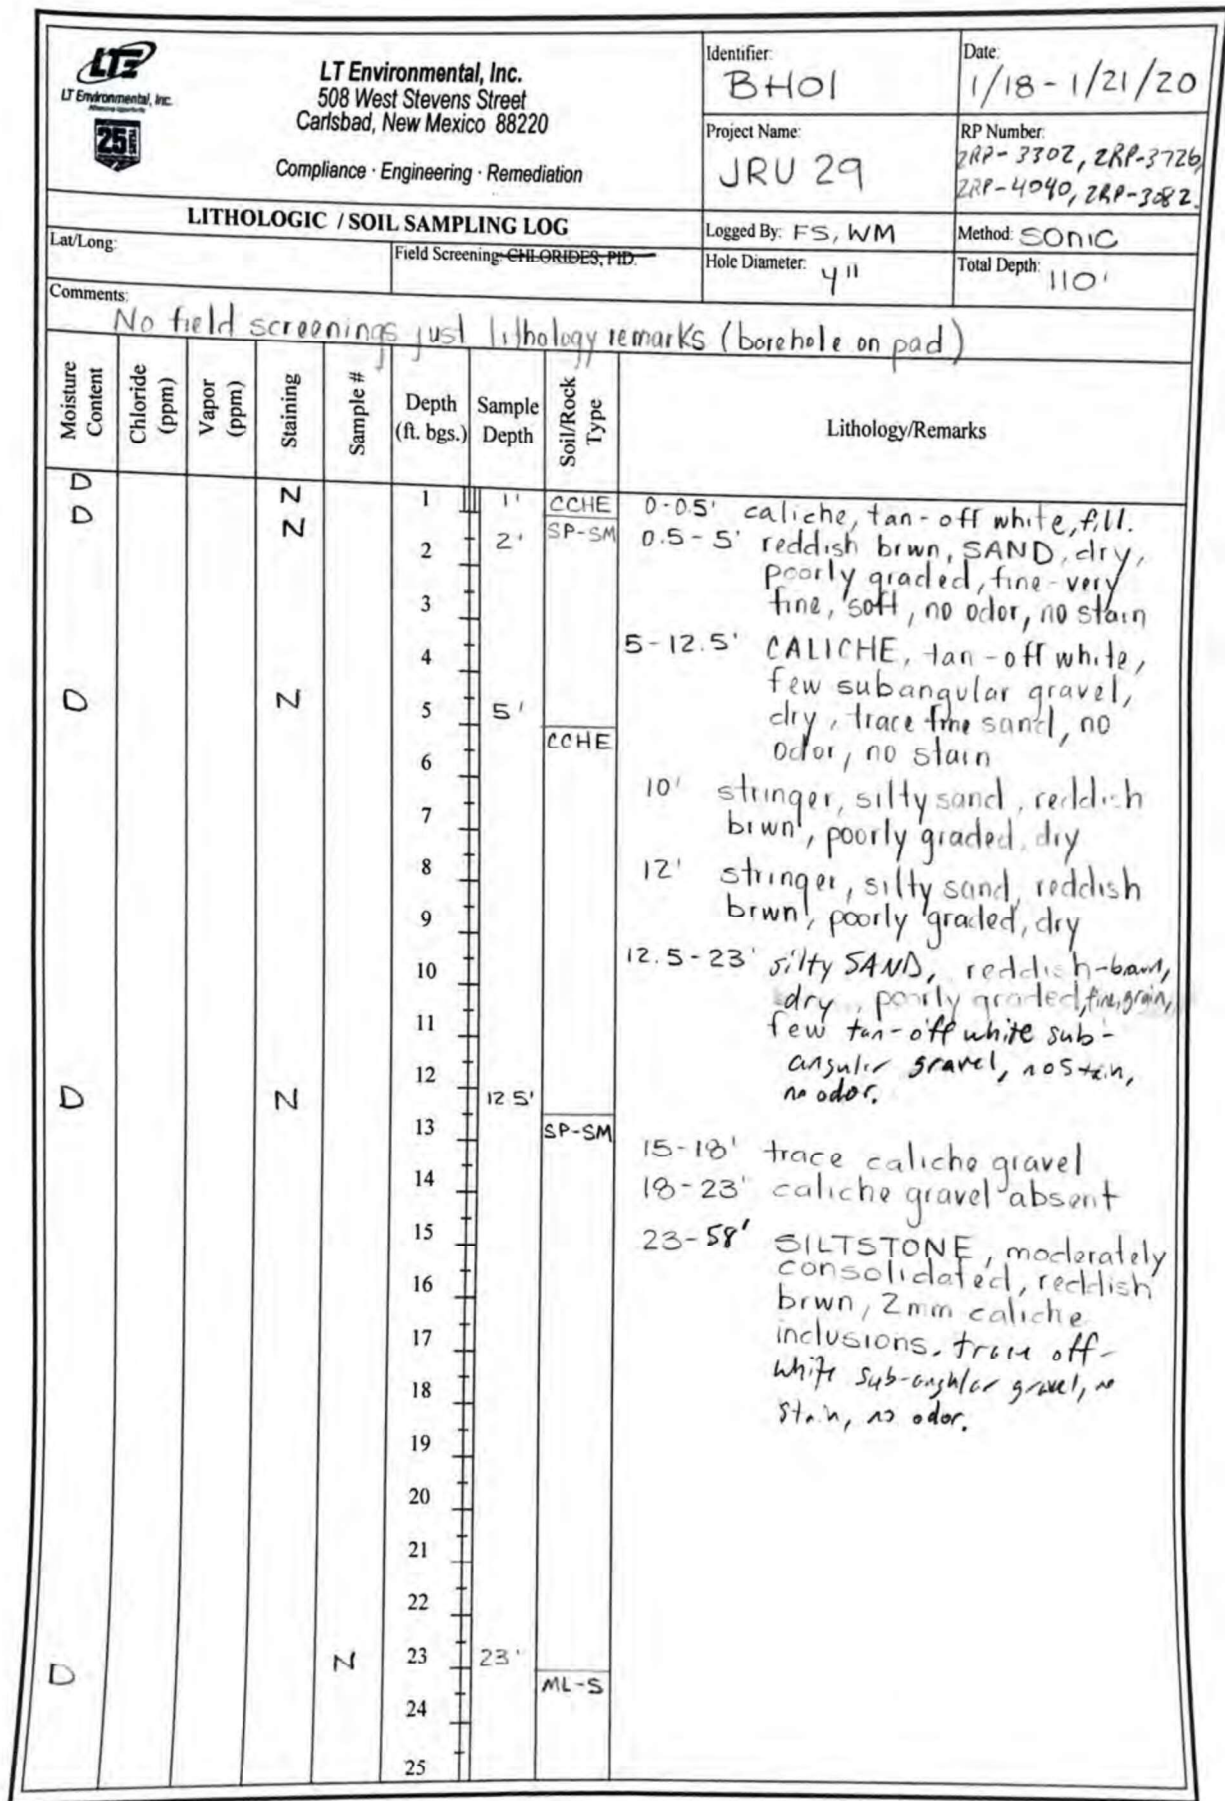 LTE
LT Environmental, Inc.
25
LT Environmental, Inc.
508 West Stevens Street
Carlsbad, New Mexico 88220
Compliance · Engineering · Remediation
Identifier:
BH01
Date:
1/18-1/21/20
Project Name:
JRU 29
RP Number:
2RP-3302, 2RP-3726,
2RP-4040, 2RP-3082.
LITHOLOGIC / SOIL SAMPLING LOG
Logged By: FS, WM
Method: SONIC
Lat/Long:
Field Screening: CHLORIDES, PID.
Hole Diameter: 4"
Total Depth: 110'
Comments:
No field screenings just lithology remarks (borehole on pad)
Moisture Content
Chloride (ppm)
Vapor (ppm)
Staining
Sample #
Depth (ft. bgs.)
Sample Depth
Soil/Rock Type
Lithology/Remarks
D N 1 1' CCHE 0-0.5' caliche, tan-off white, fill.
D N SP-SM 0.5-5' reddish brwn, SAND, dry,
2 2' poorly graded, fine-very
3 fine, soft, no odor, no stain
4 5-12.5' CALICHE, tan-off white,
few subangular gravel,
D N 5 5' dry, trace fine sand, no
CCHE odor, no stain
6
7 10' stringer, silty sand, reddish
brwn, poorly graded, dry
8 12' stringer, silty sand, reddish
9 brwn, poorly graded, dry
10 12.5-23' silty SAND, reddish-brwn,
dry, poorly graded, fine, grain,
11 few tan-off white sub-
12 angular gravel, no stain,
D N 12.5' no odor.
13 SP-SM
15-18' trace caliche gravel
14 18-23' caliche gravel absent
15 23-58' SILTSTONE, moderately
16 consolidated, reddish
brwn, 2mm caliche
17 inclusions, trace off-
18 white sub-angular gravel, no
19 stain, no odor.
20
21
22
D N 23 23'
ML-S
24
25